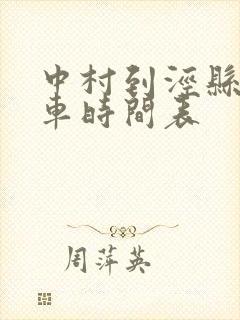 中村到涇縣
車時間表
周萍英